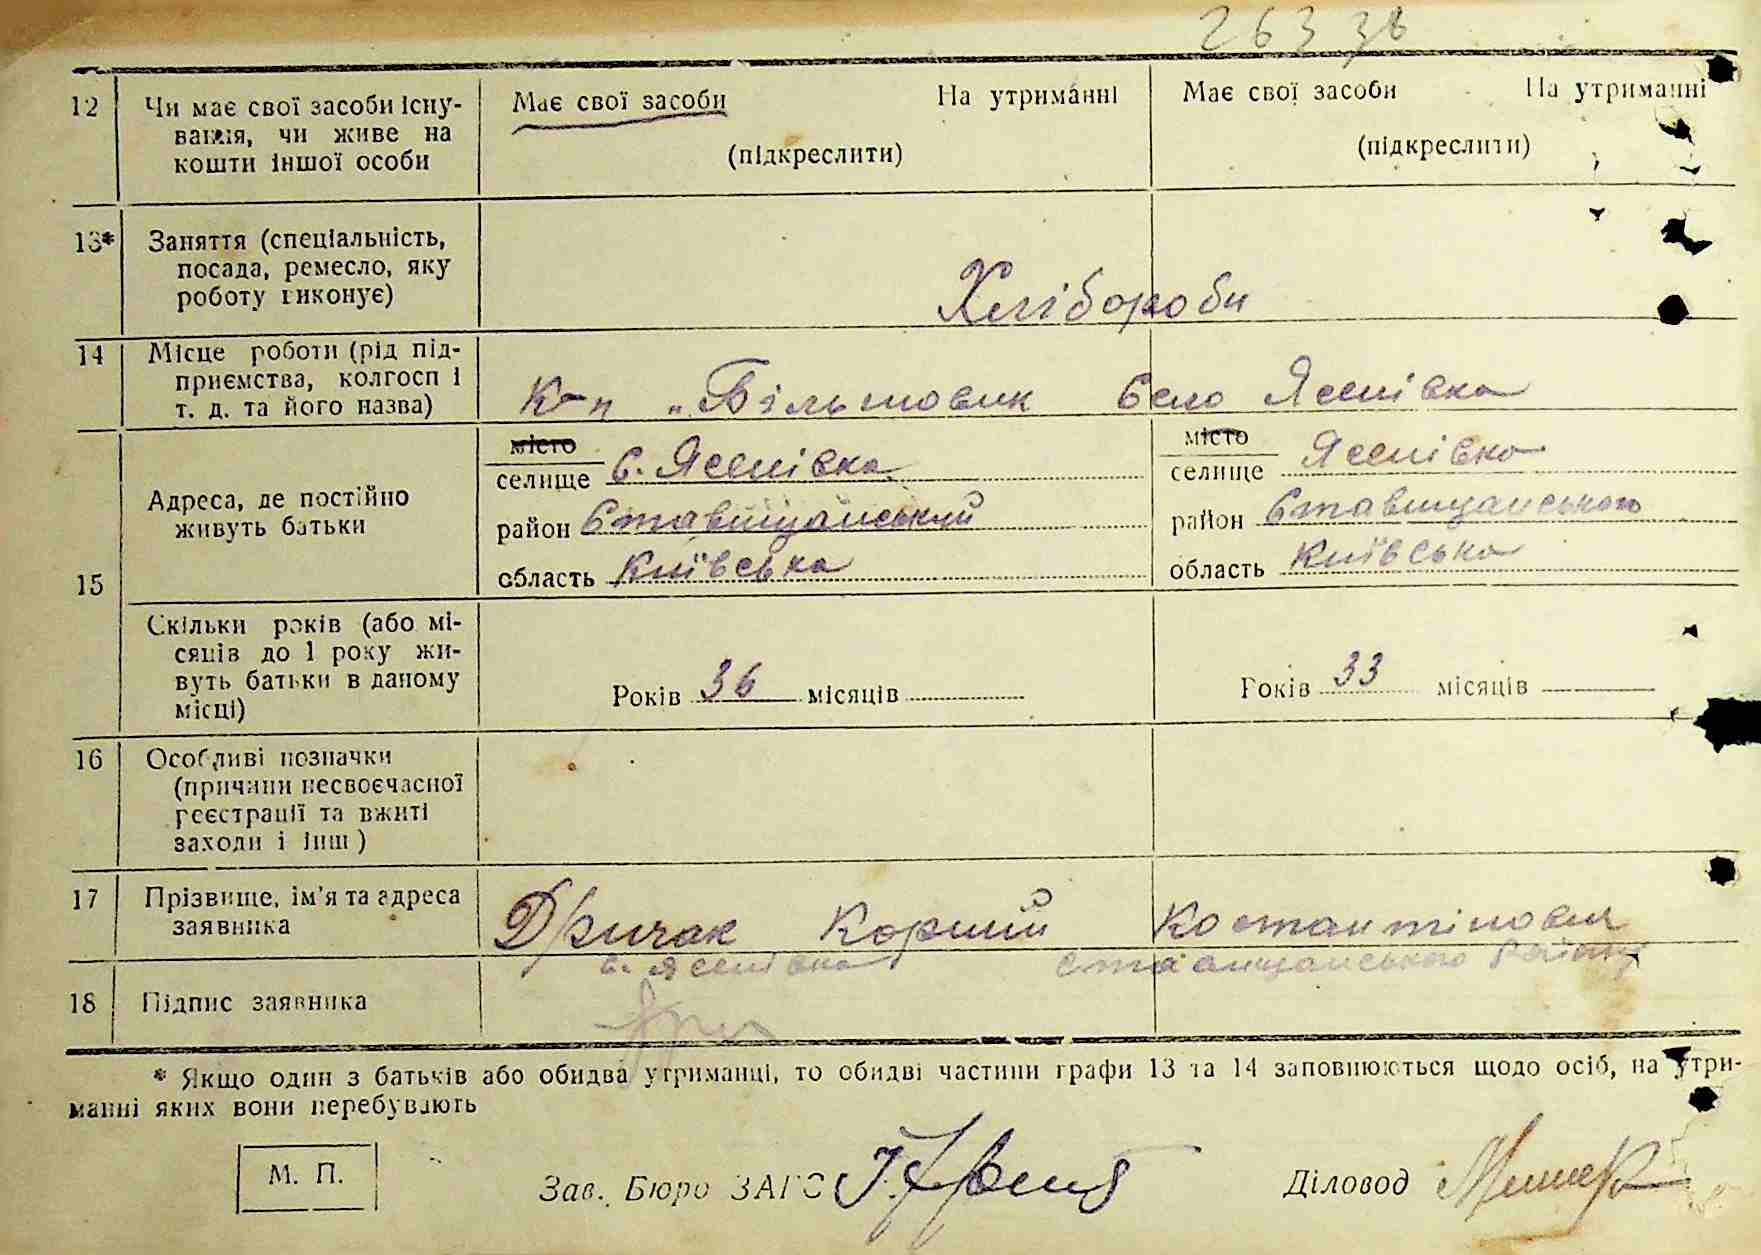 26336
12 Чи має свої засоби існу- Має свої засоби На утриманні Має свої засоби На утриманні
вання, чи живе на (підкреслити) (підкреслити)
кошти іншої особи
13* Заняття (спеціальність,
посада, ремесло, яку
роботу виконує) Хлібороби
14 Місце роботи (рід під-
приємства, колгосп і
т. д. та його назва) К-п „Більшовик Село Яснівка
місто місто
селище с. Яснівка селище Яснівка
15 Адреса, де постійно
живуть батьки район Ставищанський район Ставищанського
область Київська область Київська
Скільки років (або мі-
сяців до 1 року жи-
вуть батьки в даному Років 36 місяців Років 33 місяців
місці)
16 Особливі позначки
(причини несвоєчасної
реєстрації та вжиті
заходи і інш)
17 Прізвище, ім'я та адреса
заявника Дричак Корній Костантінович
с. Яснівка Ставищанського району
18 Підпис заявника
* Якщо один з батьків або обидва утриманці, то обидві частини графи 13 та 14 заповнюються щодо осіб, на утри-
манні яких вони перебувають
М. П. Зав. Бюро ЗАГС Діловод